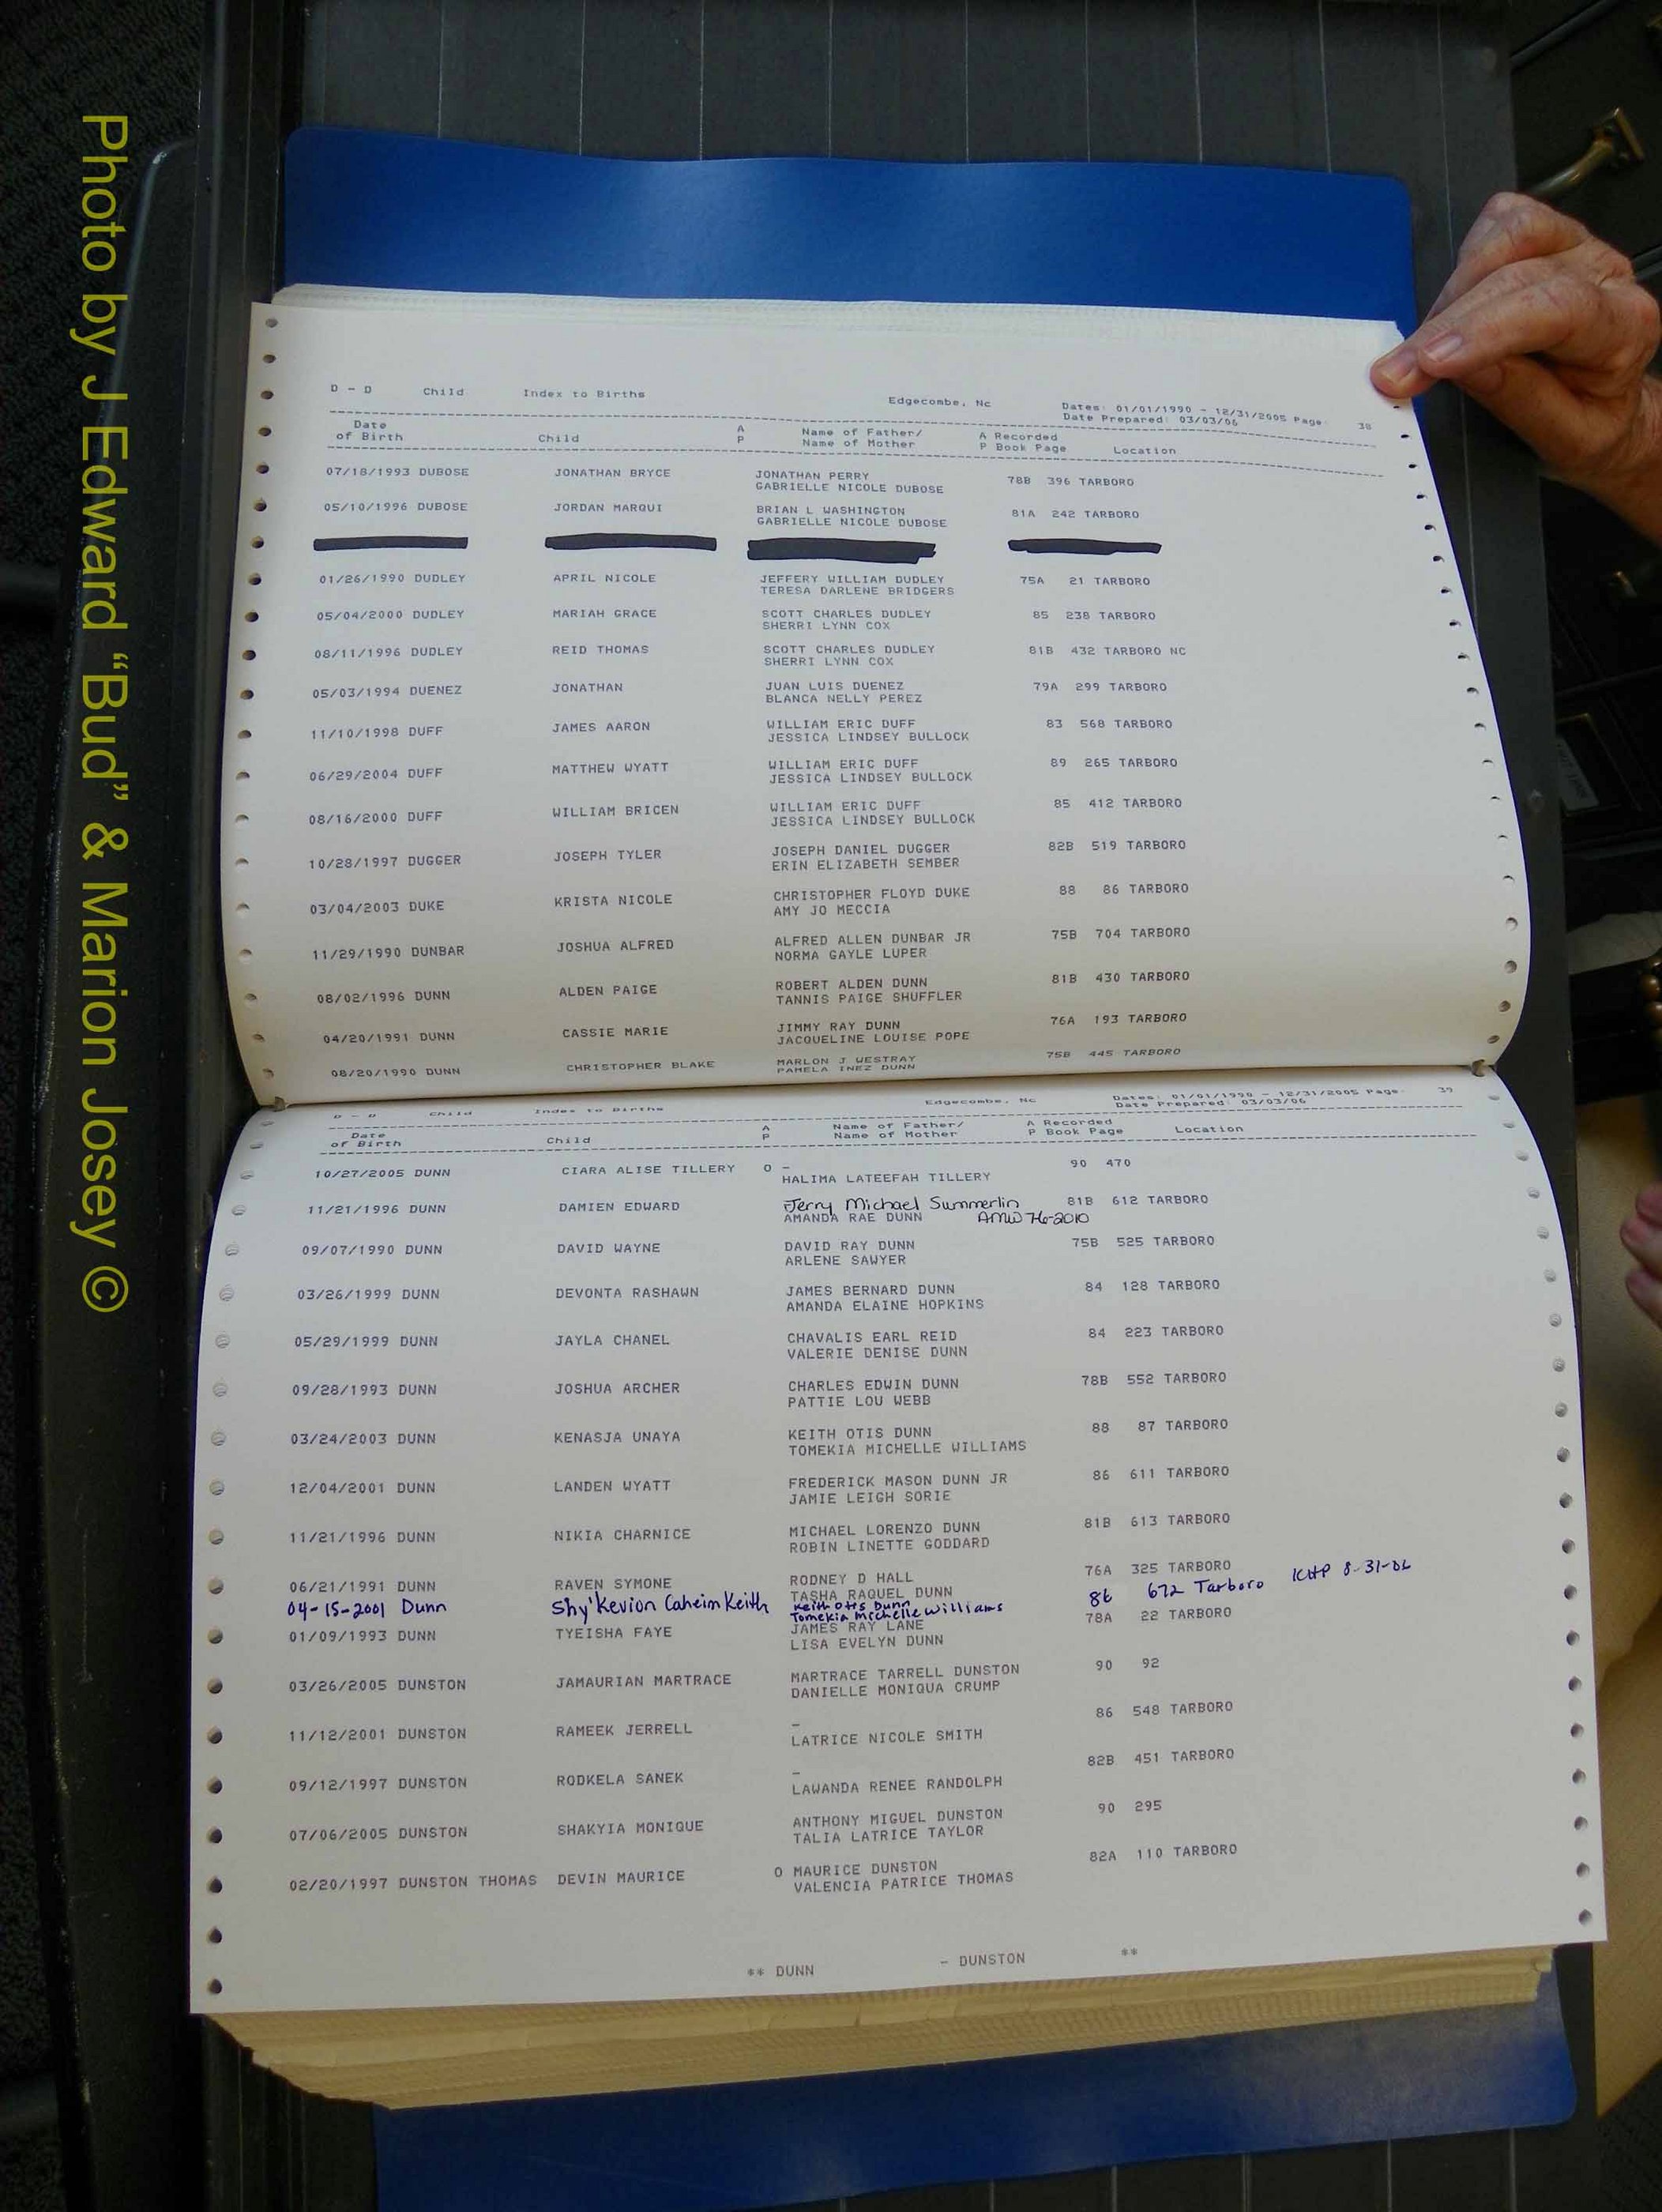 Photo by J Edward "Bud" & Marion Josey ©
D - D Child Index to Births Edgecombe, Nc Dates: 01/01/1990 - 12/31/2005 Page: 38
Date Prepared: 03/03/06
Date of Birth Child A P Name of Father/ Name of Mother A P Recorded Book Page Location
07/18/1993 DUBOSE JONATHAN BRYCE JONATHAN PERRY 78B 396 TARBORO
GABRIELLE NICOLE DUBOSE
05/10/1996 DUBOSE JORDAN MARQUI BRIAN L WASHINGTON 81A 242 TARBORO
GABRIELLE NICOLE DUBOSE
01/26/1990 DUDLEY APRIL NICOLE JEFFERY WILLIAM DUDLEY 75A 21 TARBORO
TERESA DARLENE BRIDGERS
05/04/2000 DUDLEY MARIAH GRACE SCOTT CHARLES DUDLEY 85 238 TARBORO
SHERRI LYNN COX
08/11/1996 DUDLEY REID THOMAS SCOTT CHARLES DUDLEY 81B 432 TARBORO NC
SHERRI LYNN COX
05/03/1994 DUENEZ JONATHAN JUAN LUIS DUENEZ 79A 299 TARBORO
BLANCA NELLY PEREZ
11/10/1998 DUFF JAMES AARON WILLIAM ERIC DUFF 83 568 TARBORO
JESSICA LINDSEY BULLOCK
06/29/2004 DUFF MATTHEW WYATT WILLIAM ERIC DUFF 89 265 TARBORO
JESSICA LINDSEY BULLOCK
08/16/2000 DUFF WILLIAM BRICEN WILLIAM ERIC DUFF 85 412 TARBORO
JESSICA LINDSEY BULLOCK
10/28/1997 DUGGER JOSEPH TYLER JOSEPH DANIEL DUGGER 82B 519 TARBORO
ERIN ELIZABETH SEMBER
03/04/2003 DUKE KRISTA NICOLE CHRISTOPHER FLOYD DUKE 88 86 TARBORO
AMY JO MECCIA
11/29/1990 DUNBAR JOSHUA ALFRED ALFRED ALLEN DUNBAR JR 75B 704 TARBORO
NORMA GAYLE LUPER
08/02/1996 DUNN ALDEN PAIGE ROBERT ALDEN DUNN 81B 430 TARBORO
TANNIS PAIGE SHUFFLER
04/20/1991 DUNN CASSIE MARIE JIMMY RAY DUNN 76A 193 TARBORO
JACQUELINE LOUISE POPE
08/20/1990 DUNN CHRISTOPHER BLAKE MARLON J WESTRAY 75B 445 TARBORO
PAMELA INEZ DUNN
D - D Child Index to Births Edgecombe, Nc Dates: 01/01/1990 - 12/31/2005 Page: 39
Date Prepared: 03/03/06
Date of Birth Child A P Name of Father/ Name of Mother A P Recorded Book Page Location
10/27/2005 DUNN CIARA ALISE TILLERY O - 90 470
HALIMA LATEEFAH TILLERY
11/21/1996 DUNN DAMIEN EDWARD Jerry Michael Summerlin 81B 612 TARBORO
AMANDA RAE DUNN AMW 7-6-2010
09/07/1990 DUNN DAVID WAYNE DAVID RAY DUNN 75B 525 TARBORO
ARLENE SAWYER
03/26/1999 DUNN DEVONTA RASHAWN JAMES BERNARD DUNN 84 128 TARBORO
AMANDA ELAINE HOPKINS
05/29/1999 DUNN JAYLA CHANEL CHAVALIS EARL REID 84 223 TARBORO
VALERIE DENISE DUNN
09/28/1993 DUNN JOSHUA ARCHER CHARLES EDWIN DUNN 78B 552 TARBORO
PATTIE LOU WEBB
03/24/2003 DUNN KENASJA UNAYA KEITH OTIS DUNN 88 87 TARBORO
TOMEKIA MICHELLE WILLIAMS
12/04/2001 DUNN LANDEN WYATT FREDERICK MASON DUNN JR 86 611 TARBORO
JAMIE LEIGH SORIE
11/21/1996 DUNN NIKIA CHARNICE MICHAEL LORENZO DUNN 81B 613 TARBORO
ROBIN LINETTE GODDARD
06/21/1991 DUNN RAVEN SYMONE RODNEY D HALL 76A 325 TARBORO
TASHA RAQUEL DUNN
04-15-2001 Dunn Shy'Kevion Caheim Keith Keith Otis Dunn 86 672 Tarboro KHP 8-31-06
Tomekia Michelle Williams
01/09/1993 DUNN TYEISHA FAYE JAMES RAY LANE 78A 22 TARBORO
LISA EVELYN DUNN
03/26/2005 DUNSTON JAMAURIAN MARTRACE MARTRACE TARRELL DUNSTON 90 92
DANIELLE MONIQUA CRUMP
11/12/2001 DUNSTON RAMEEK JERRELL - 86 548 TARBORO
LATRICE NICOLE SMITH
09/12/1997 DUNSTON RODKELA SANEK - 82B 451 TARBORO
LAWANDA RENEE RANDOLPH
07/06/2005 DUNSTON SHAKYIA MONIQUE ANTHONY MIGUEL DUNSTON 90 295
TALIA LATRICE TAYLOR
02/20/1997 DUNSTON THOMAS DEVIN MAURICE O MAURICE DUNSTON 82A 110 TARBORO
VALENCIA PATRICE THOMAS
** DUNN - DUNSTON **